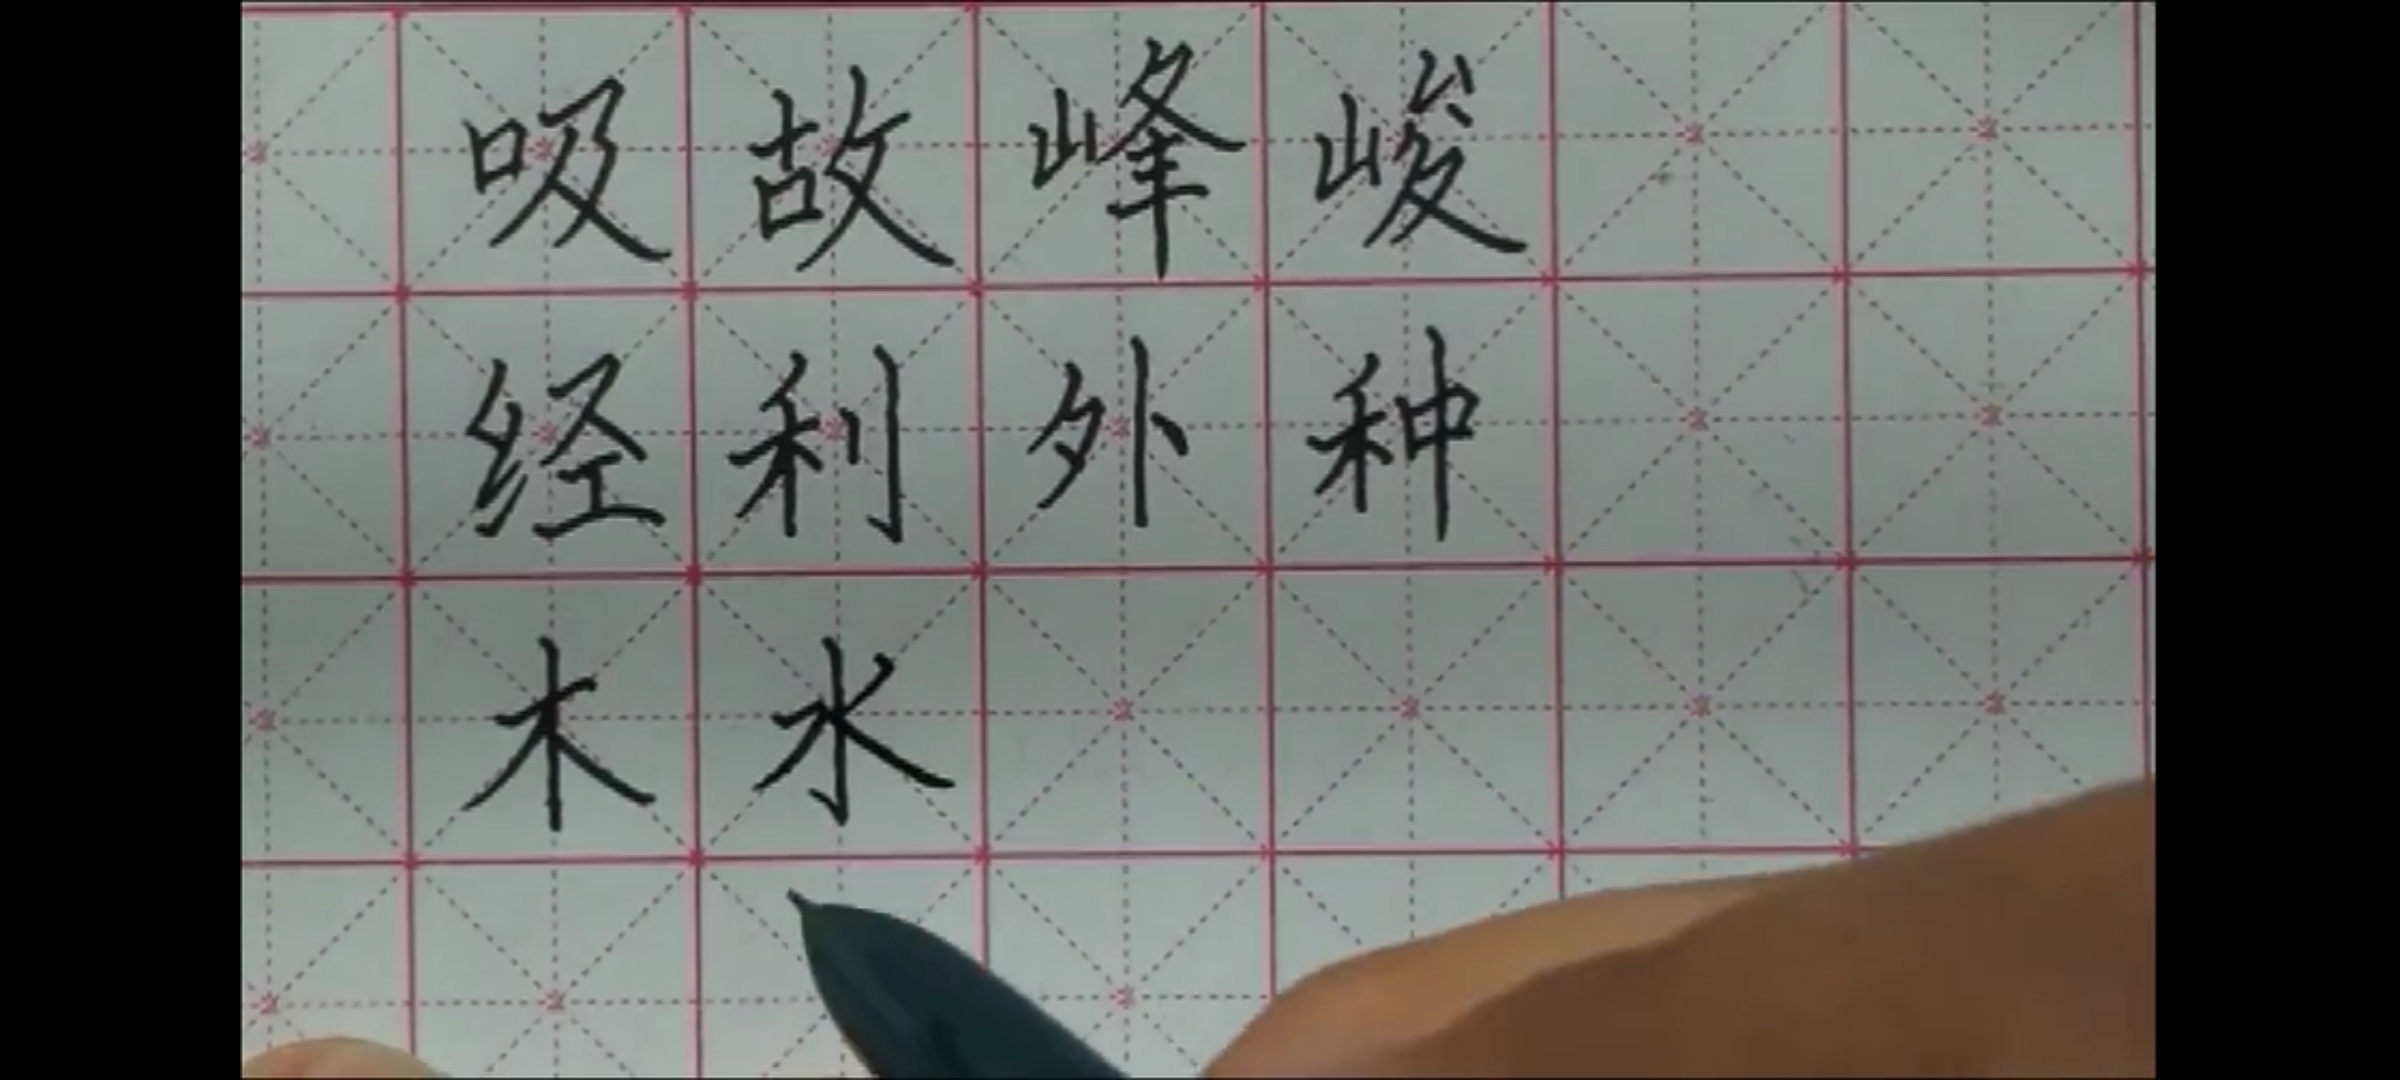 吸故峰峻
经利外种
木水